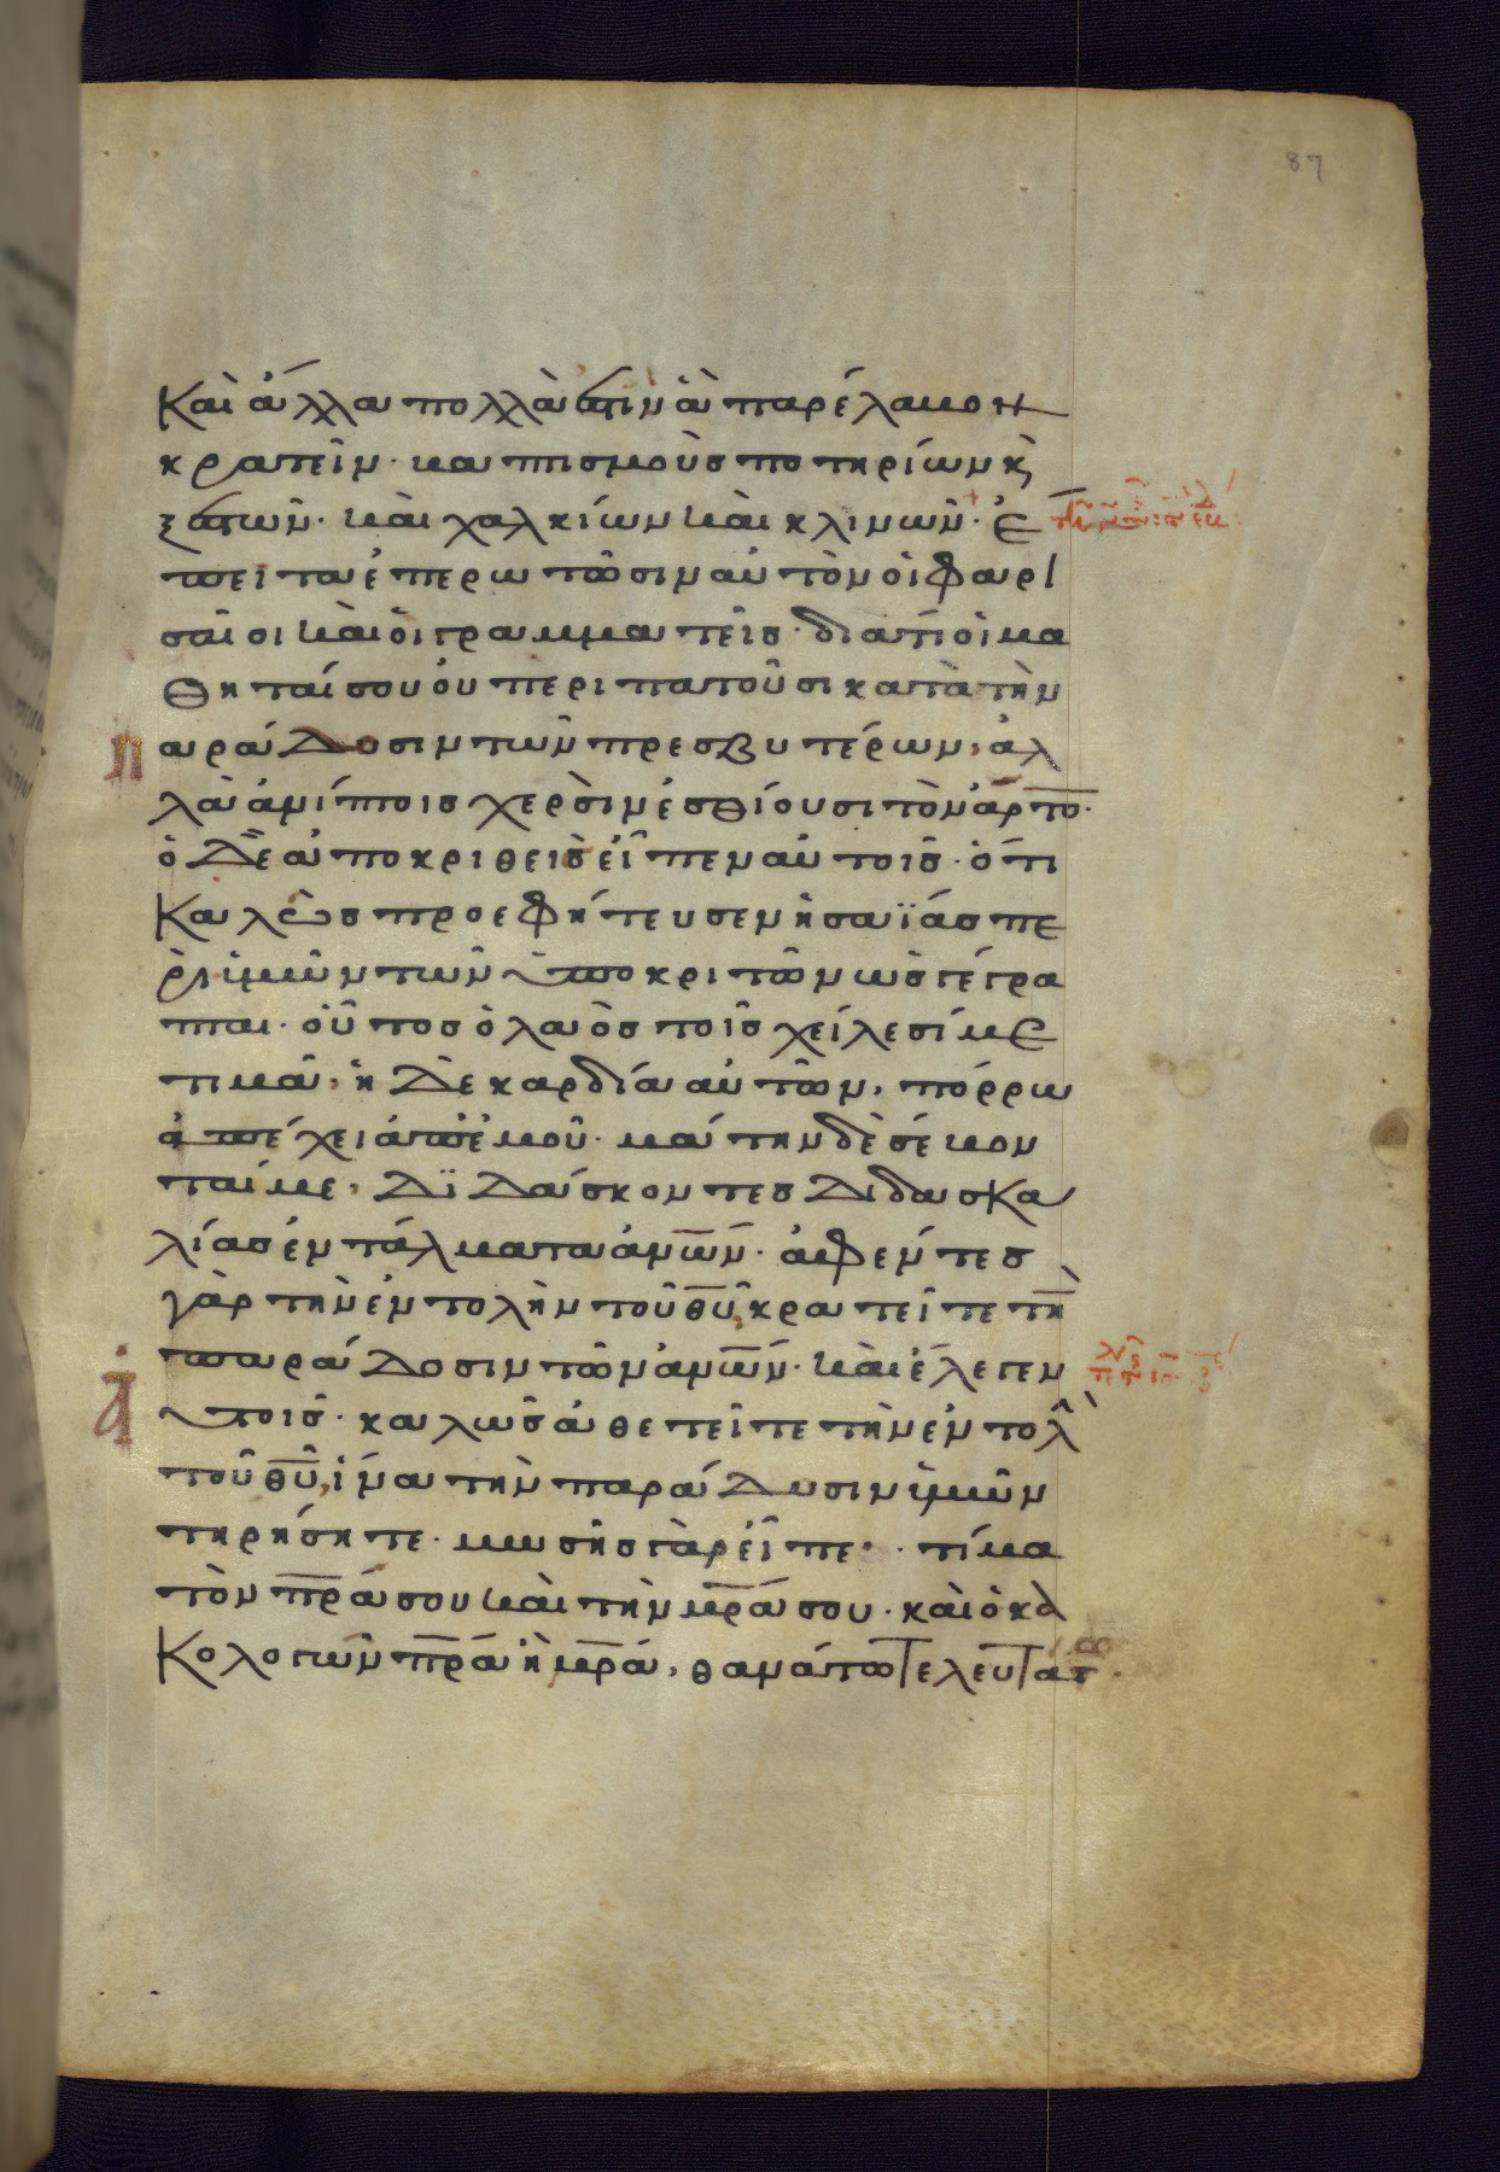 87
Καὶ ἄλλα πολλά ἐστιν ἃ παρέλαβον
κρατεῖν· βαπτισμοὺς ποτηρίων κ̀
ξεστῶν· καὶ χαλκίων καὶ κλινῶν· ἔ
πειτα ἐπερωτῶσιν αὐτὸν οἱ φαρι
σαῖοι καὶ οἱ γραμματεῖς· διατί οἱ μα
θηταί σου οὐ περιπατοῦσι κατὰ τὴν
παράδοσιν τῶν πρεσβυτέρων, ἀλ
λὰ ἀνίπτοις χερσὶν ἐσθίουσι τὸν ἄρτο̅·
ὁ δὲ ἀποκριθεὶς εἶπεν αὐτοῖς· ὅτι
Καλῶς προεφήτευσεν ἡσαΐας πε
ρὶ ὑμῶν τῶν ὑποκριτῶν ὡς γέγρα
πται· οὗτος ὁ λαὸς τοῖς χείλεσί με
τιμᾶ, ἡ δὲ καρδία αὐτῶν, πόρρω
ἀπέχει ἀπ' ἐμοῦ· μάτην δὲ σέβον
ταί με, δϊδάσκοντες διδασκα
λίας ἐντάλματα ἀν̅ω̅ν· ἀφέντες
γὰρ τὴν ἐντολὴν τοῦ θ̅υ̅, κρατεῖτε τὴ̅
παράδοσιν τῶν ἀν̅ω̅ν· καὶ ἔλεγεν
αὐτοῖς· καλῶς ἀθετεῖτε τὴν ἐντολ
τοῦ θ̅υ̅, ἵνα τὴν παράδοσιν ὑμῶν
τηρήσητε· μωσῆς γὰρ εἶπε· τίμα
τὸν π̅ρ̅α σου καὶ τὴν μ̅ρ̅α σου· καὶ ὁ κα
Κολογῶν π̅ρ̅α ἢ μ̅ρ̅α, θανάτω τελευτάτ